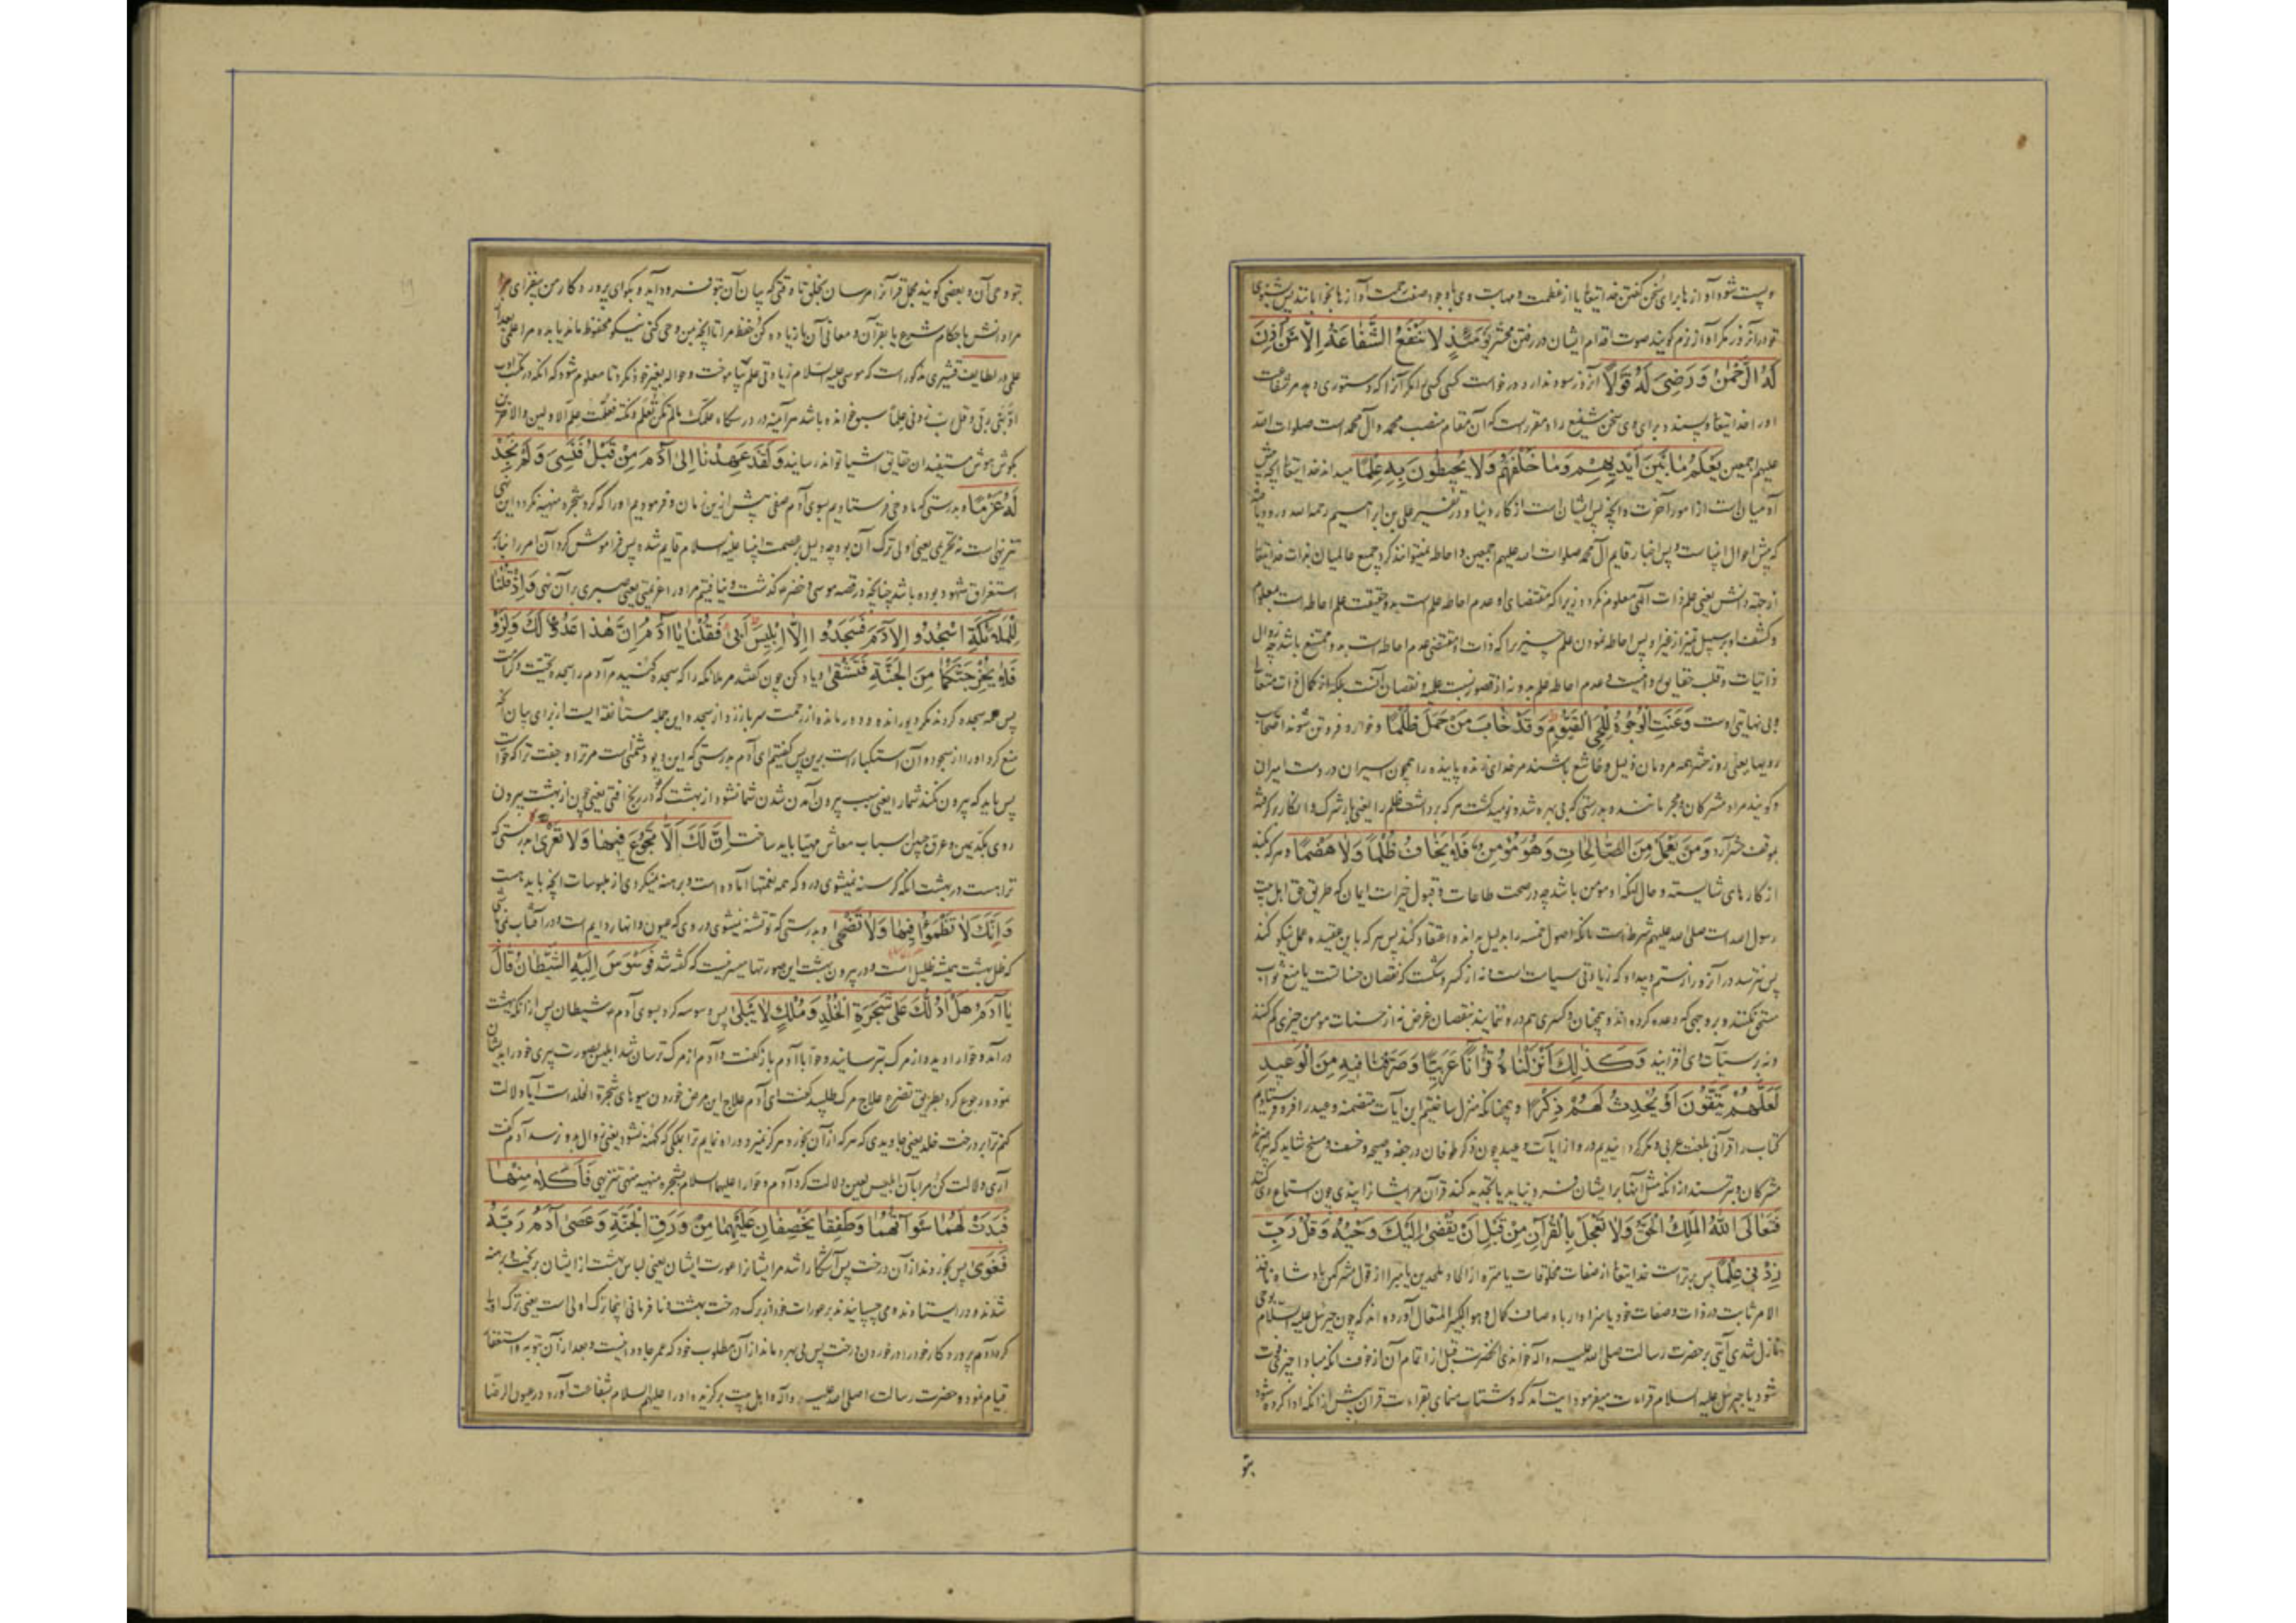 و پست شود آوازها برای سخن گفتن خدایتعالی یا از عظمت و مهابت وی با وجود صفت رحمت آوازها بخوابانند پس نشنوی
تو در آنروز مکر آواز نرم کویند صوت اقدام ایشان در رفتن محشر یَوْمَئِذٍ لا تَنْفَعُ الشَّفاعَةُ اِلّا مَنْ اَذِنَ
لَهُ الرَّحْمٰنُ وَرَضِیَ لَهُ قَوْلاً آنروز سود ندارد درخواست کسی کسی را مکر آنرا که دستوری دهد مر شفاعت
او را خدایتعالی و پسندد برای وی سخن شفیع را و مقرر است که آن مقام منصب محمد و آل محمد است صلوات الله
علیهم اجمعین یَعْلَمُ ما بَیْنَ اَیْدیهِمْ وَما خَلْفَهُمْ وَلا یُحیطُونَ بِهِ عِلْماً میداند خدایتعالی آنچه پیش
آدمیان است از امور آخرت و آنچه پس ایشان است از کار دنیا و در تفسیر علی بن ابراهیم رحمه الله
که پیش احوال انبیاست و پس اخبار قایم آل محمد صلوات الله علیهم اجمعین و احاطه نمیتوانند کرد جمیع عالمیان بذات خدایتعالی
از جهة دانش یعنی علم ذات الهی معلوم نکردد زیرا که مقتضای او عدم احاطه علم است به و حقیقت علم احاطه است بمعلوم
و کشف او بر سبیل تمیز از غیر او پس احاطه نمودن علم چیزی را که ذات او مقتضی عدم احاطه است به و ممتنع باشد چه زوال
ذاتیات و قلب حقایق روا نیست و عدم احاطه علم بدو نه از قصور نسبت علمیه و نقصان آنست بلکه از کمال ذات متعالی
و بی نهایتی اوست وَعَنَتِ الْوُجُوهُ لِلْحَیِّ الْقَیُّومِ وَقَدْ خابَ مَنْ حَمَلَ ظُلْماً و خوار و فروتن شوند اصحاب
رویها یعنی روز حشر همه مردمان ذلیل و خاشع باشند مر خدای زنده پاینده را همچون اسیران در دست امیران
و کویند مراد مشرکان و مجرمانند و بدرستی که بی بهره شد و نومید کشت هر که برداشت ظلم را یعنی بار شرک و انکار بر
بموقف حشر آرد وَمَنْ یَعْمَلْ مِنَ الصّالِحاتِ وَهُوَ مُؤْمِنٌ فَلا یَخافُ ظُلْماً وَلا هَضْماً و هر که بکند
از کارهای شایسته و حال آنکه او مومن باشد چه در صحت طاعات و قبول خیرات ایمان که طریق حق اهل بیت
رسول الله است صلی الله علیهم شرط است بانکه اصول خمسه را بدلیل بداند و اعتقاد کند پس هر که باین عقیده عمل نیکو کند
پس نترسد در آنروز از ستم و بیداد که زیادتی سیات است و نه از کسر و شکست که نقصان حسنا تست یا منع ثواب
مستحق نکنند و بروجهی که وعده کرده اند و همچنان و کسری هم درو ننمایند بنقصان غرض نه از حسنات مومن چیزی کم کنند
و نه بر سیآت وی افزایند وَکَذلِکَ اَنْزَلْناهُ قُرْآناً عَرَبِیّاً وَصَرَّفْنا فیهِ مِنَ الْوَعیدِ
لَعَلَّهُمْ یَتَّقُونَ اَوْ یُحْدِثُ لَهُمْ ذِکْراً و همچنانکه منزل ساختیم این آیات متضمنه وعید را فرو فرستادیم
کتاب را قرآنی بلغت عربی و مکرر کردانیدیم درو از آیات وعید چون ذکر طوفان و رجفه و صیحه و خسف و مسخ شاید که بپرهیزند
مشرکان و بترسند از آنکه مثل آنها برایشان فرود نیاید یا تجدید کند قرآن مر ایشانرا پندی چون استماع وی کنند
فَتَعالَی اللّهُ الْمَلِکُ الْحَقُّ وَلا تَعْجَلْ بِالْقُرْآنِ مِنْ قَبْلِ اَنْ یُقْضی اِلَیْکَ وَحْیُهُ وَقُلْ رَبِّ
زِدْنی عِلْماً پس برتر است خدایتعالی از صفات مخلوقات یا منزه از الحاد ملحدین یا مبرا از قول مشرکین پادشاه نافذ
الامر ثابت در ذات و صفات خود یا سزاوار باوصاف کمال و هو الکبیر المتعال آورده اند که چون جبرئیل علیه السلام بوحی
نازل شدی آیتی بر حضرت رسالت صلی الله علیه و آله خواندی آنحضرت قبل از اتمام آن از خوف آنکه مبادا چیزی فوت
شود با جبرئیل علیه السلام قراءت میفرمود آیت آمد که و شتاب منمای بقراءت قرآن پیش از آنکه ادا کرده شود
بتو
بتو وحی آن و بعضی کویند مجمل قرآنرا مرسان بخلق تا وقتی که بیان آن بتو فرود آید و بکو ای پرورد کار من بیفزای مرا
مرا دانش باحکام شرع یا بقرآن و معانی آن یا زیاده کن حفظ مرا تا آنچه بمن وحی کنی نیکو محفوظ ماند یا بده مرا علمی بعد
علمی در لطایف قشیری مذکور است که موسی علیه السلام زیادتی علم بیاموخت و حواله بغیر خود نکرد تا معلوم شود که آنکه در مکتب ادب
ادبنی ربی و قل رب زدنی علماً سبوح خوانده باشد هرآینه در درسکاه علمک مالم تکن تعلم و نکته فعلمت علم الاولین والآخرین
بکوش هوش مستفیدان حقایق اشیا تواند رسانید وَلَقَدْ عَهِدْنا اِلی آدَمَ مِنْ قَبْلُ فَنَسِیَ وَلَمْ نَجِدْ
لَهُ عَزْماً و بدرستی که ما وحی فرستادیم بسوی آدم صفی پیش از این زمان و فرمودیم او را که کرد شجره منهیه نکردد این نهی
تنزیهی است نه تحریمی یعنی اولی ترک آن بود چه دلیل بر عصمت انبیا علیهم السلام قایم شده پس فراموش کرد آن امر را بنابر
استغراق شهود بوده باشد چنانچه در قصه موسی و خضر کذشت و نیافتیم مر او را عزیمتی یعنی صبری بر آن نهی وَاِذْ قُلْنا
لِلْمَلٰئِکَةِ اسْجُدُوا لِآدَمَ فَسَجَدُوا اِلّا اِبْلیسَ اَبی فَقُلْنا یا آدَمُ اِنَّ هٰذا عَدُوٌّ لَکَ وَلِزَوْ
فَلا یُخْرِجَنَّکُما مِنَ الْجَنَّةِ فَتَشْقی و یاد کن چون کفتند مر ملائکه را که سجده کنید مر آدم را سجده تحیت و کرامت
پس همه سجده کردند مکر دیو رانده و دور مانده از رحمت سر باز زد از سجده و این جمله مستانفه ایست از برای بیان آنکه
منع کرد او را از سجود و آن استکبار است برین پس کفتیم ای آدم بدرستی که این دیو دشمنی است مر ترا و جفت ترا که حواست
پس باید که بیرون نکند شما را یعنی سبب بیرون آمدن شما نشود از بهشت که در رنج افتی یعنی چون از بهشت بیرون
روی بکد یمین و عرق جبین اسباب معاش مهیا باید ساخت اِنَّ لَکَ اَلّا تَجُوعَ فیها وَلا تَعْری بدرستی که
ترا هست در بهشت آنکه کرسنه نمیشوی درو که همه نعمتها آماده است و برهنه نمیکردی از ملبوسات آنچه باید هست
وَاِنَّکَ لا تَظْمَؤُا فیها وَلا تَضْحی و بدرستی که تو تشنه نمیشوی در وی که عیون و انهار دایم است و در آفتاب نمی باشی
که ظل بهشت همیشه ظلیل است و در بیرون بهشت این صورتها میسر نیست که کفته شد فَوَسْوَسَ اِلَیْهِ الشَّیْطانُ قالَ
یا آدَمُ هَلْ اَدُلُّکَ عَلی شَجَرَةِ الْخُلْدِ وَمُلْکٍ لا یَبْلی پس وسوسه کرد بسوی آدم شیطان پس از آنکه بهشت
درآمد و حوا را دید و از مرک بترسانید و حوا با آدم باز کفت و آدم از مرک ترسان شد ابلیس بصورت پیری خود را بدیشان
نموده رجوع کرد بطریق تضرع علاج مرک طلبید کفت ای آدم علاج این مرض خوردن میوهای شجرة الخلد است آیا دلالت
کنم ترا بر درخت خلد یعنی جاویدی که هر که از آن بخورد هرکز نمیرد و راه نمایم ترا بملکی که کهنه نشود یعنی زوال بدو نرسد آدم کفت
آری دلالت کن مرا بآن ابلیس لعین دلالت کرد آدم و حوا را علیهما السلام بشجره منهیه بنهی تنزیهی فَاَکَلا مِنْها
فَبَدَتْ لَهُما سَوْآتُهُما وَطَفِقا یَخْصِفانِ عَلَیْهِما مِنْ وَرَقِ الْجَنَّةِ وَعَصی آدَمُ رَبَّهُ
فَغَوی پس بخوردند از آن درخت پس آشکارا شد مر ایشانرا عورت ایشان یعنی لباس بهشت از ایشان بریخت و برهنه
شدند و در ایستادند می چسپانیدند بر عورات خود از برک درخت بهشت و نافرمانی اینجا ترک اولی است یعنی ترک اولی
کرد آدم پرورد کار خود را در خوردن درخت پس بی بهره ماند از آن مطلوب خود که عمر جاودانیست و بعد از آن بتوبه و استغفار
قیام نمود و حضرت رسالت صلی الله علیه وآله و اهل بیت برکزیده او را علیهم السلام شفاعت آورد در عیون الرضا